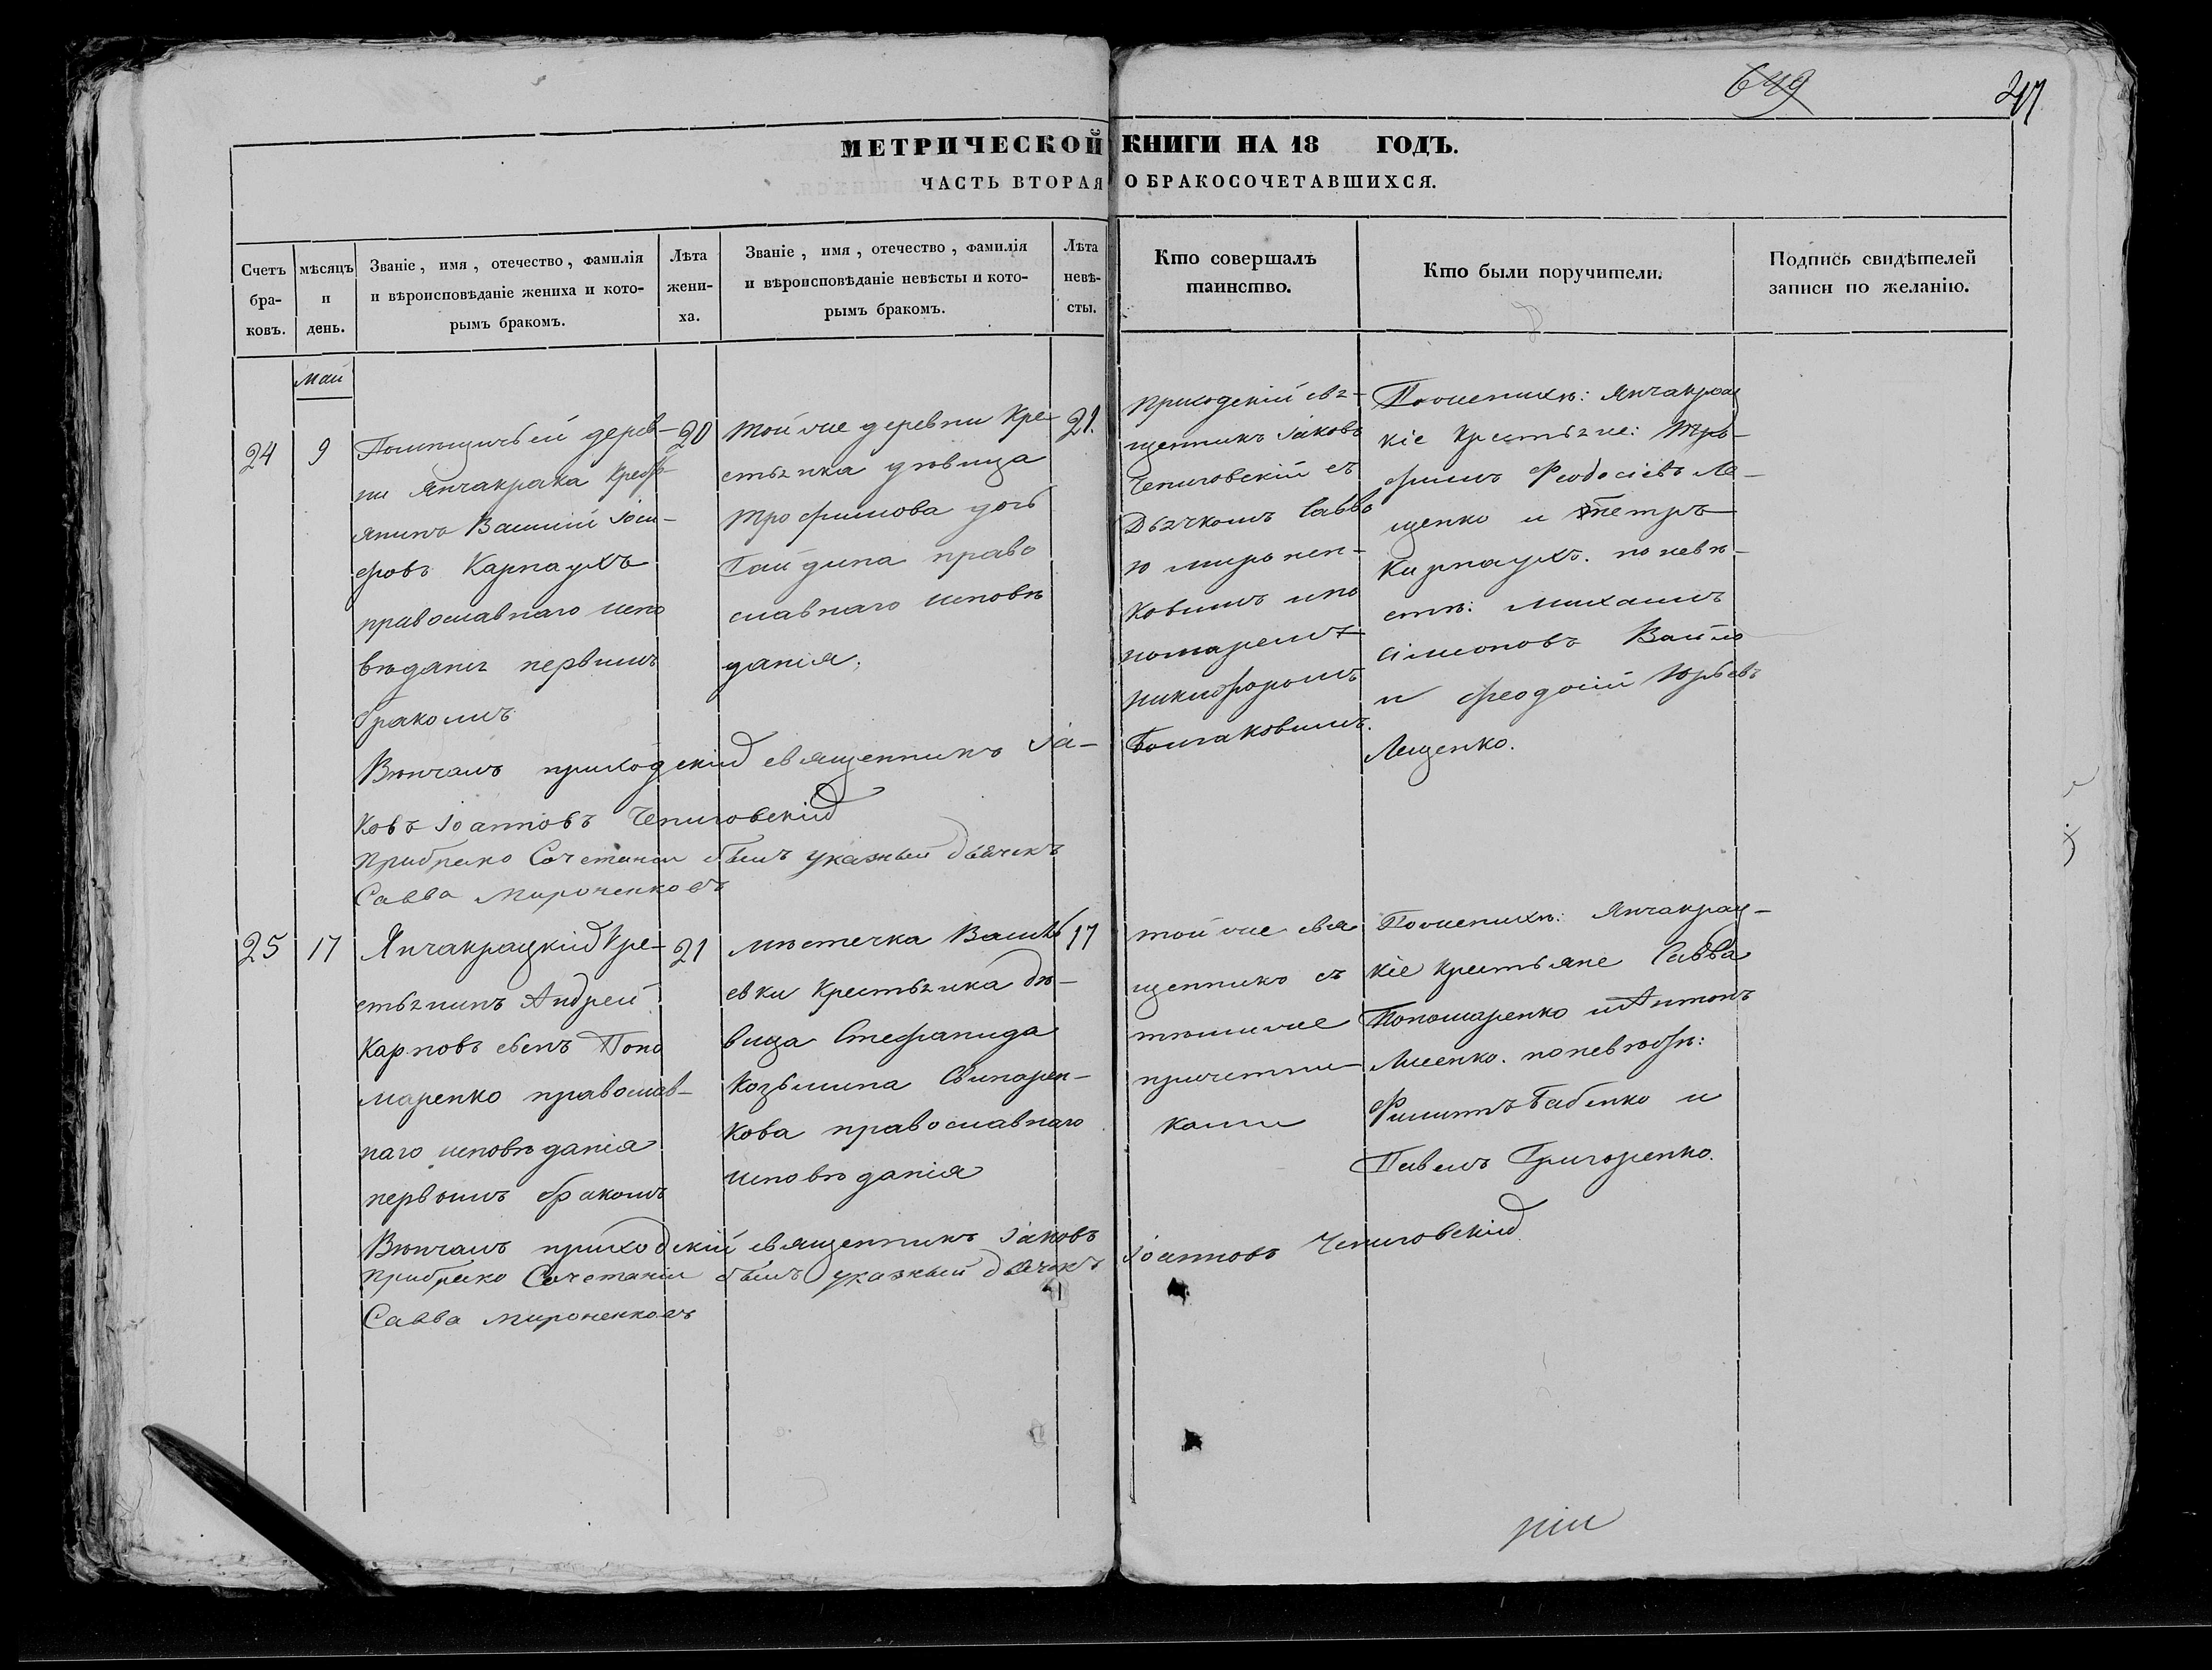 649
47
МЕТРИЧЕСКОЙ КНИГИ НА 18 ГОДЪ.
ЧАСТЬ ВТОРАЯ О БРАКОСОЧЕТАВШИХСЯ.
Счетъ бра-
ковъ.
мѣсяцъ
и
день.
Званіе, имя, отечество, фамилія
и вѣроисповѣданіе жениха и кото-
рымъ бракомъ.
Лѣта
жени-
ха.
Званіе, имя, отечество, фамилія
и вѣроисповѣданіе невѣсты и кото-
рымъ бракомъ.
Лѣта
невѣ-
сты.
Кто совершалъ
таинство.
Кто были поручители.
Подпись свидѣтелей
записи по желанію.
май
24
9
Помѣщичьей дерев-
ни Янчакрака Крест
янинъ Василій Іоси-
фовъ Карпаухъ
православнаго испо
вѣданія первымъ
бракомъ
20
той же деревни Кре-
стьянка дѣвица
Трофимова дочь
Гайдина право
славнаго исповѣ
данія.
21.
приходскій свя-
щенникъ Іаковъ
Чепиговскій съ
Дьячкомъ Савво
ю миронен-
ковымъ и по
номаремъ
никифоромъ
Болгаковымъ.
Поженихѣ: Янчакрац
кіе крестьяне: Тро-
фимъ Феодосіевъ Ле-
щенко и петръ
Карпаухъ. по невѣ-
стѣ: Михаилъ
Сімеоновъ Вайло
и феодосій Юрьевъ
Лещенко.
Вѣнчалъ приходскій священникъ Іа-
ковъ Іоанновъ Чепиговскій
При брако Сочетании былъ указный дьячекъ
Савва мироненковъ
25
17
Янчакрацкій Кре-
стьянинъ Андрей
Карповъ сынъ Поно
маренко православ-
наго исповѣданія
первымъ бракомъ
21
мѣстечка Василь
евки Крестьянка дѣ-
вица Стефанида
Козьмина Свинарен-
кова православнаго
исповѣданія
17
той же свя
щенникъ съ
тѣми же
причетни
ками
Поженихѣ: Янчакрац-
кіе крестьяне Савва
Пономаренко и Антонъ
по невѣстѣ:
Филиппъ Бабенко и
Павелъ Григоренко.
Вѣнчалъ приходскій священникъ Іаковъ Іоанновъ Чепиговскій
При брако Сочетании былъ указный дьячекъ
Савва мироненковъ